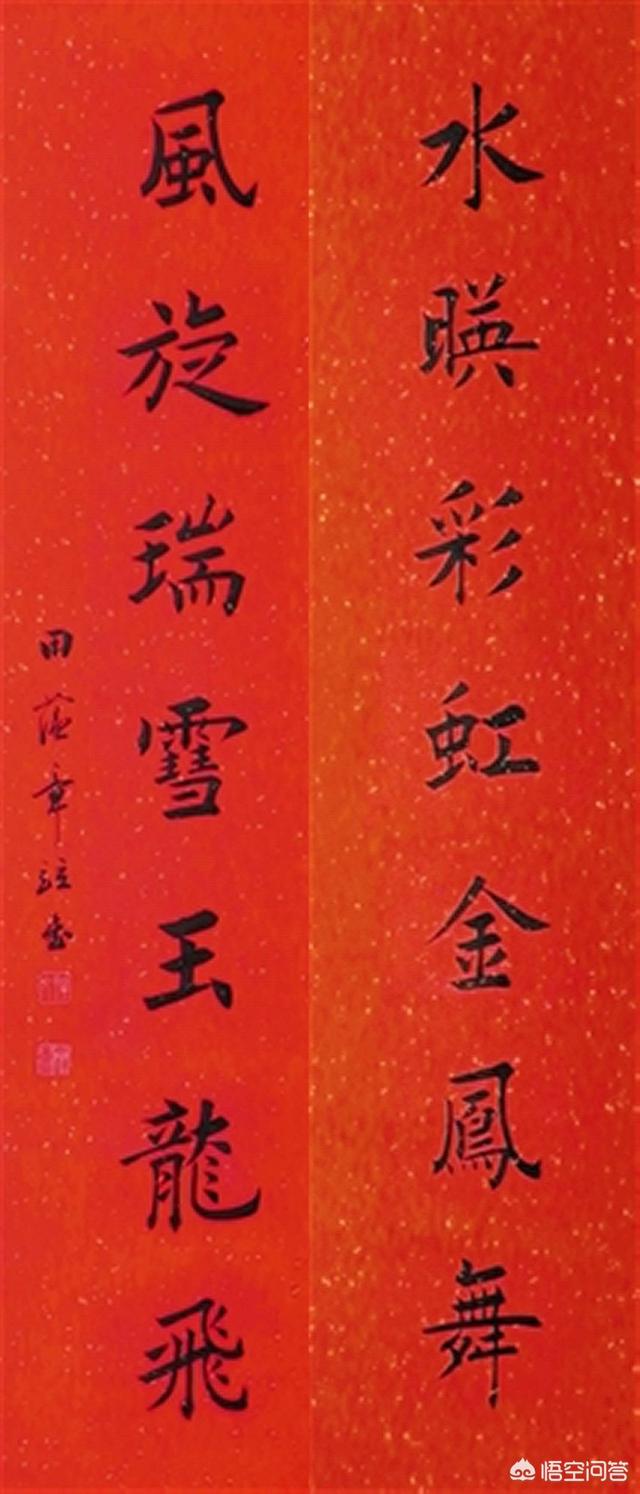 水暎彩虹金鳳舞
風旋瑞雪玉龍飛
田蕴章
悟空问答